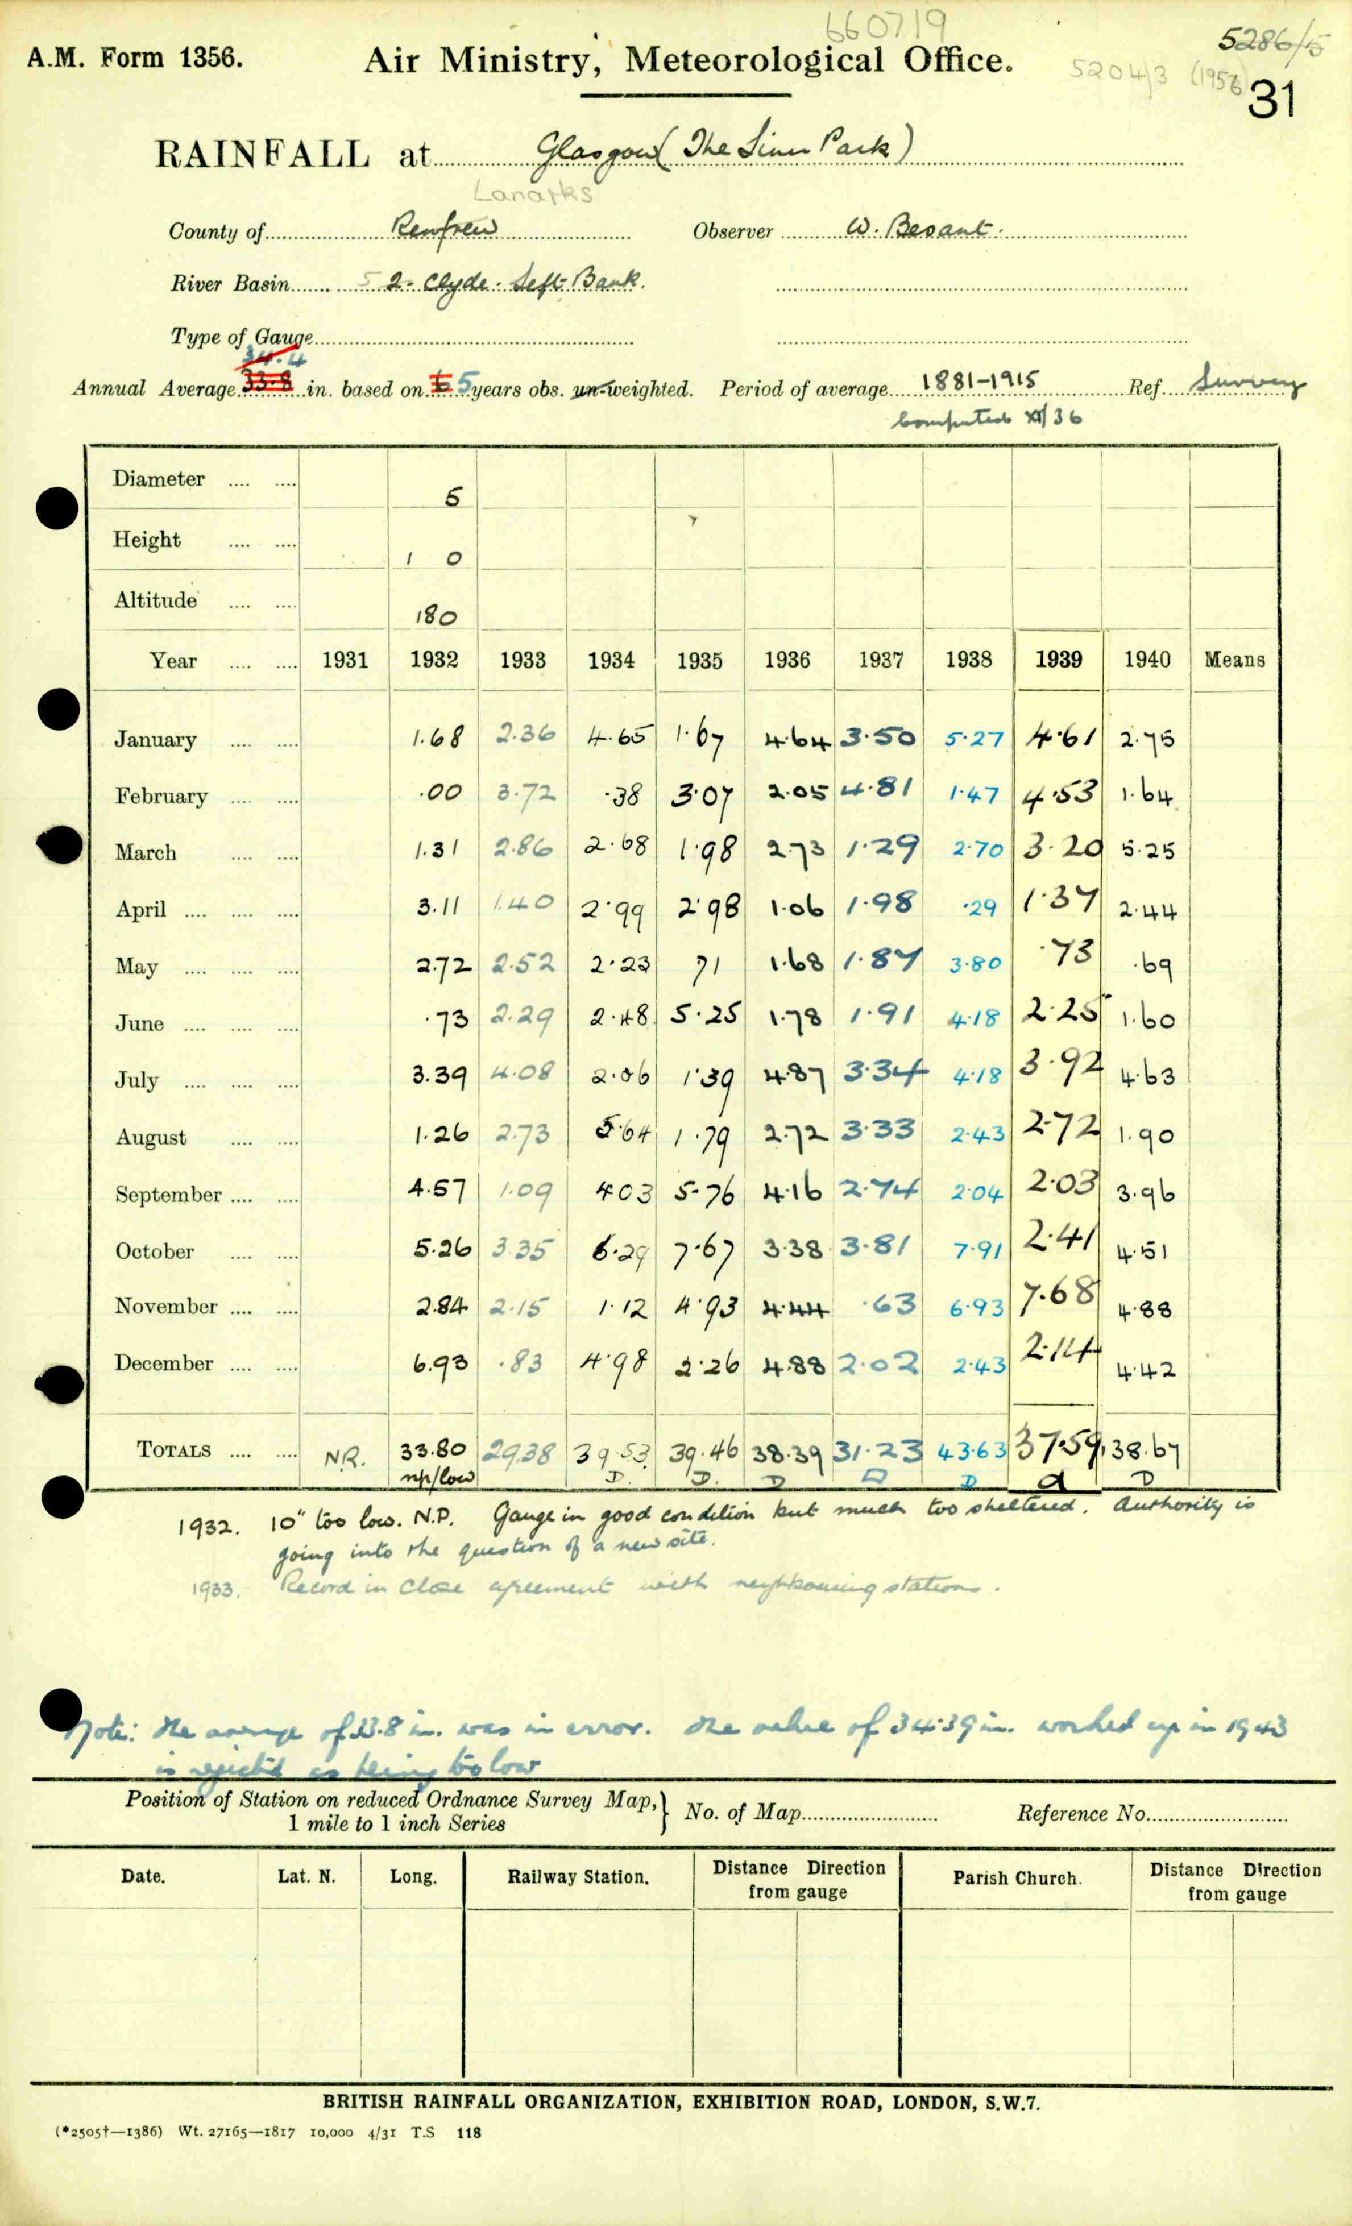 660719
A.M. Form 1356. Air Ministry, Meteorological Office. 5286/5
5204/3 (1956) 31
RAINFALL at Glasgow (The Linn Park)
Lanarks
County of Renfrew Observer W. Besant.
River Basin 5 2. Clyde. Left Bank.
Type of Gauge
34.4
Annual Average 33.8 in. based on 6 5 years obs. un-weighted. Period of average 1881-1915 Ref. Survey
Computed XI/36
Diameter .... .... 5
Height .... .... 1 0
Altitude .... .... 180
Year .... .... 1931 1932 1933 1934 1935 1936 1937 1938 1939 1940 Means
January .... .... 1.68 2.36 4.65 1.67 4.64 3.50 5.27 4.61 2.75
February .... .... .00 3.72 .38 3.07 2.05 4.81 1.47 4.53 1.64
March .... .... 1.31 2.86 2.68 1.98 2.73 1.29 2.70 3.20 5.25
April .... .... .... 3.11 1.40 2.99 2.98 1.06 1.98 .29 1.37 2.44
May .... .... .... 2.72 2.52 2.23 71 1.68 1.87 3.80 .73 .69
June .... .... .... .73 2.29 2.48 5.25 1.78 1.91 4.18 2.25 1.60
July .... .... .... 3.39 4.08 2.06 1.39 4.87 3.34 4.18 3.92 4.63
August .... .... 1.26 2.73 5.64 1.79 2.72 3.33 2.43 2.72 1.90
September .... .... 4.57 1.09 4.03 5.76 4.16 2.74 2.04 2.03 3.96
October .... .... 5.26 3.35 6.29 7.67 3.38 3.81 7.91 2.41 4.51
November .... .... 2.84 2.15 1.12 4.93 4.44 .63 6.93 7.68 4.88
December .... .... 6.93 .83 4.98 2.26 4.88 2.02 2.43 2.14 4.42
TOTALS .... .... N.R. 33.80 29.38 39.53 39.46 38.39 31.23 43.63 37.59 38.67
np/low D. D. D D D d D
1932. 10" too low. N.P. Gauge in good condition but much too sheltered. Authority is
going into the question of a new site.
1933. Record in close agreement with neighbouring stations.
Note: The average of 33.8 in. was in error. The value of 34.39 in. worked up in 1943
is rejected as being too low
Position of Station on reduced Ordnance Survey Map, } No. of Map Reference No.
1 mile to 1 inch Series
Date. Lat. N. Long. Railway Station. Distance Direction from gauge Parish Church. Distance Direction from gauge
BRITISH RAINFALL ORGANIZATION, EXHIBITION ROAD, LONDON, S.W.7.
(*2505†—1386) Wt. 27165—1817 10,000 4/31 T.S 118